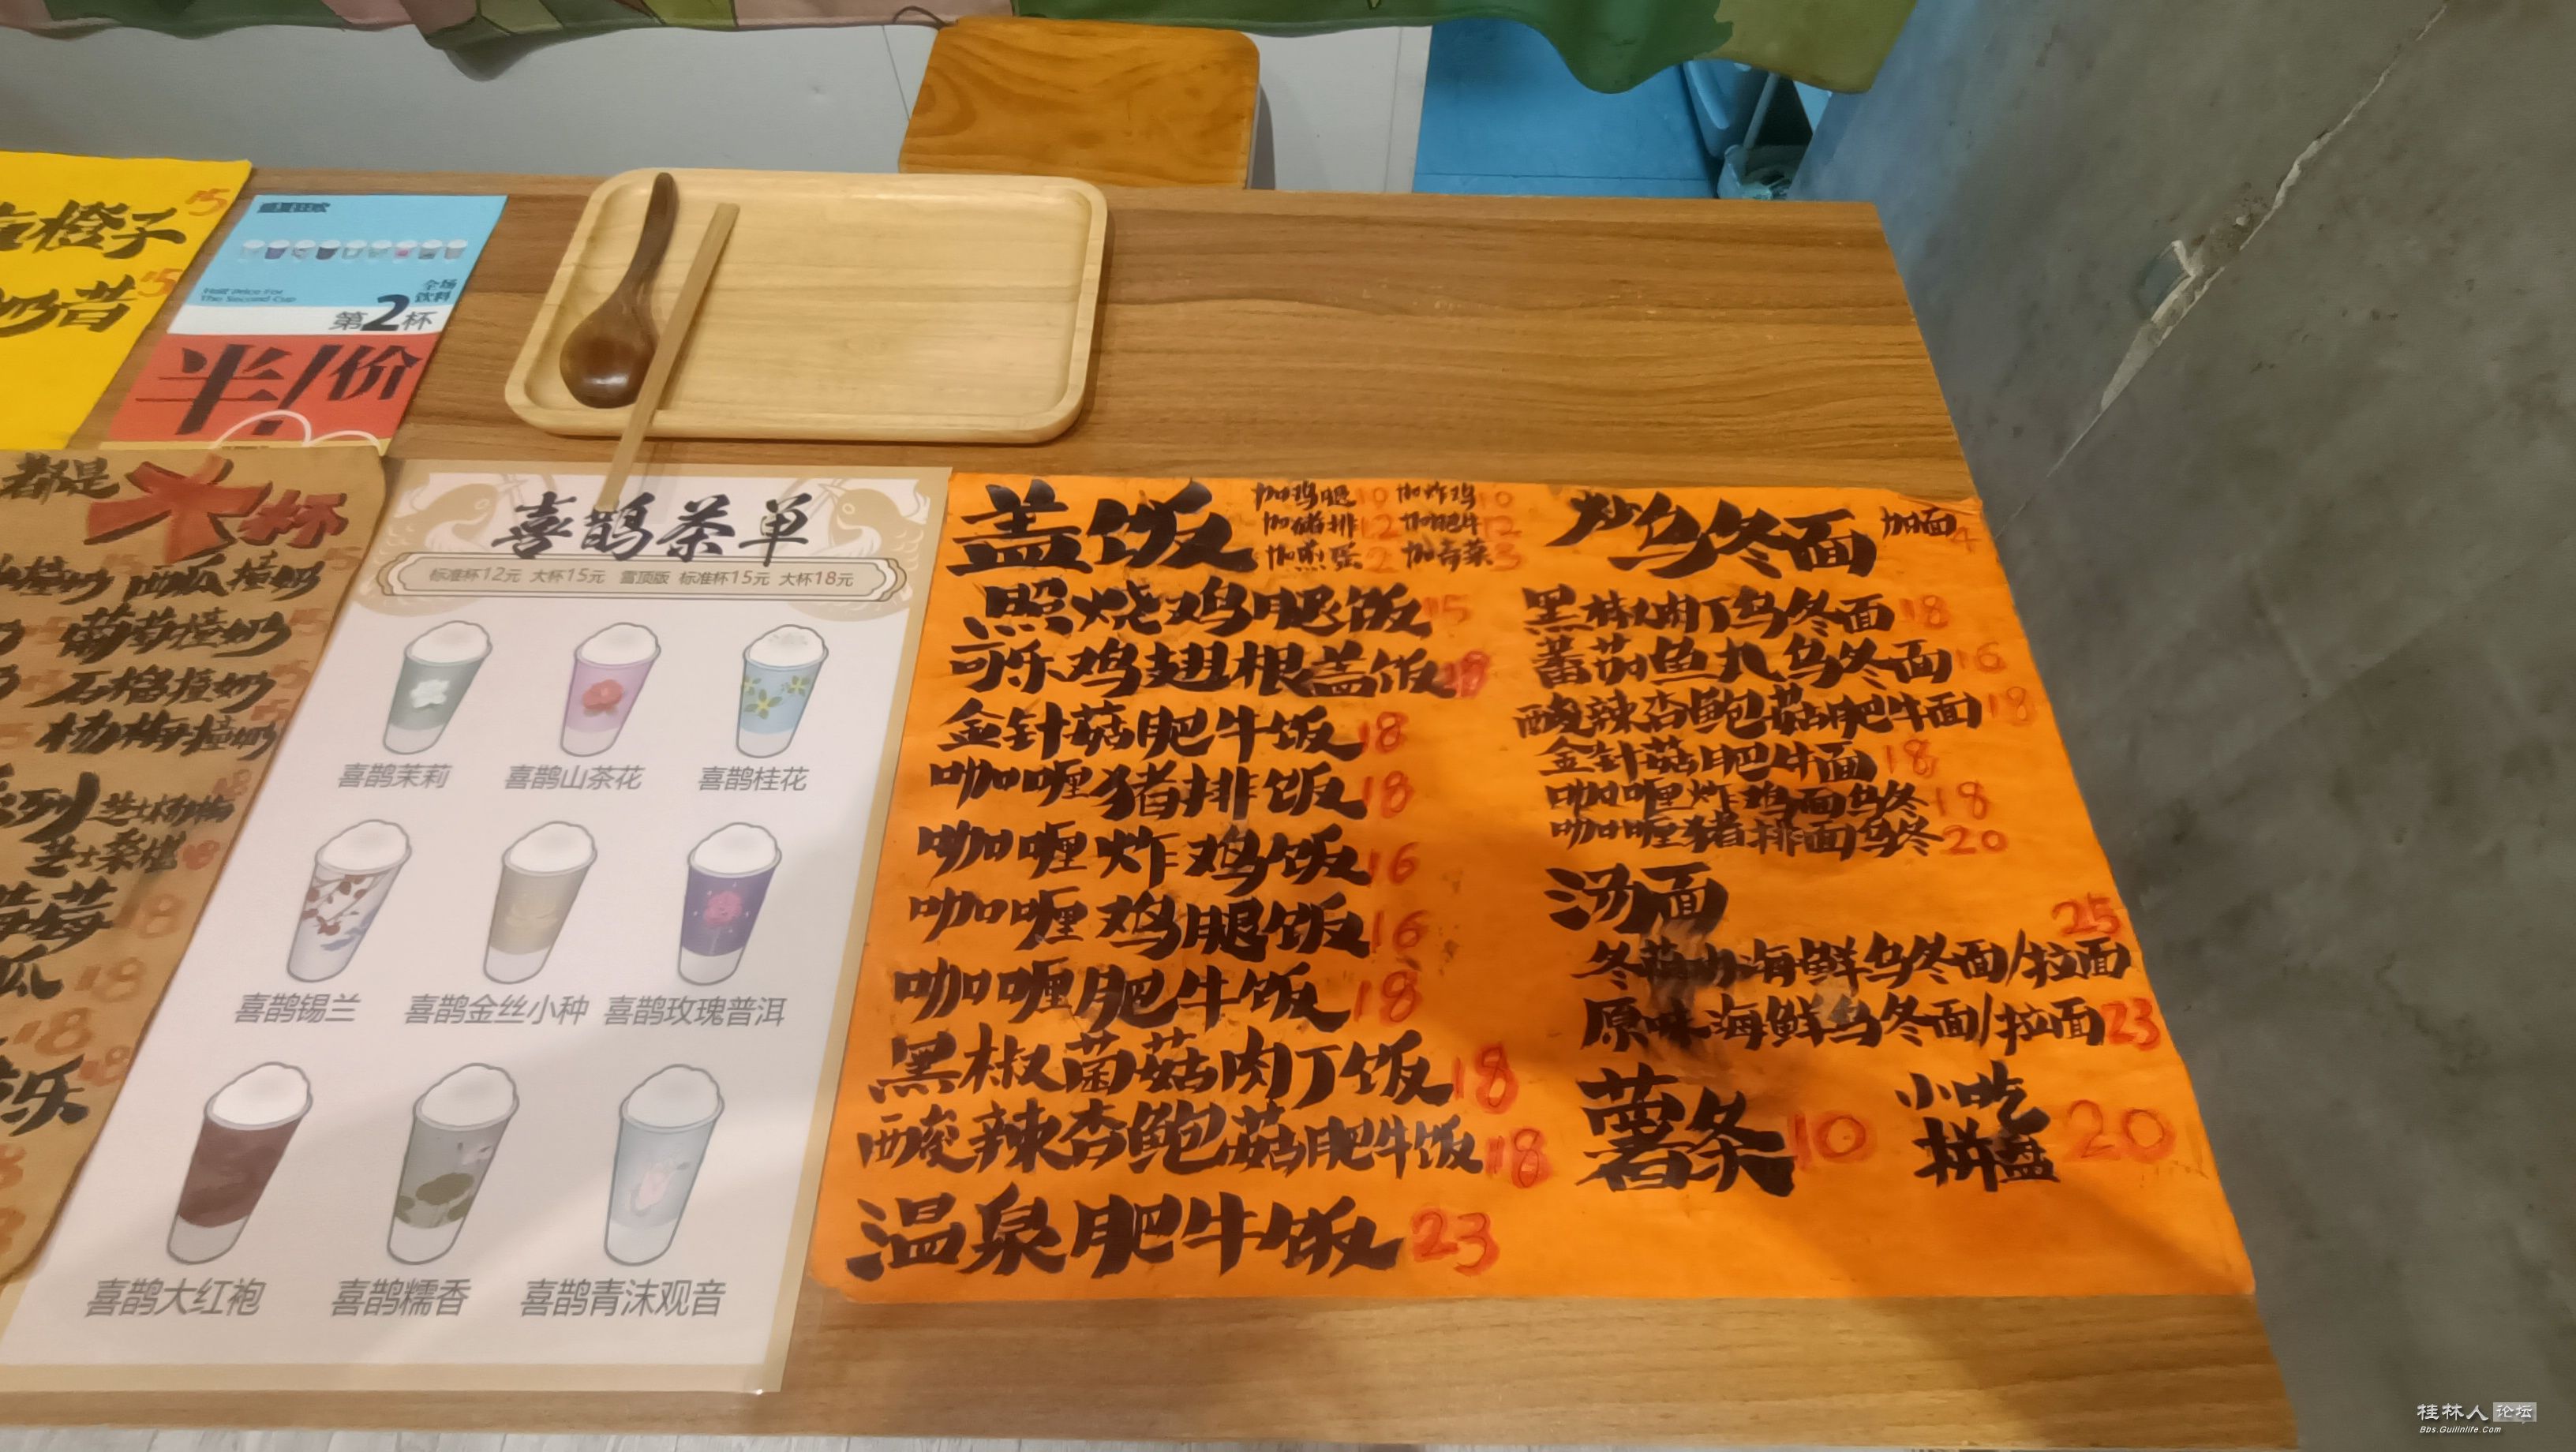 橙子 15
奶昔 15
Half Price For
The Second Cup
全场
饮料
第2杯
半价
都是大杯
撞奶 15 西瓜撞奶 15
葡萄撞奶 15
石榴撞奶 15
杨梅撞奶 15
系列 芝士杨梅 18
芝士桑椹 18
莓 18
瓜 18
18
乐 18
喜鹊茶单
标准杯12元 大杯15元 雪顶版 标准杯15元 大杯18元
喜鹊茉莉 喜鹊山茶花 喜鹊桂花
喜鹊锡兰 喜鹊金丝小种 喜鹊玫瑰普洱
喜鹊大红袍 喜鹊糯香 喜鹊青沫观音
盖饭
加鸡腿10 加炸鸡10
加猪排12 加肥牛12
加煎蛋2 加青菜3
照烧鸡腿饭 15
可乐鸡翅根盖饭 18
金针菇肥牛饭 18
咖喱猪排饭 18
咖喱炸鸡饭 16
咖喱鸡腿饭 16
咖喱肥牛饭 18
黑椒菌菇肉丁饭 18
酸辣杏鲍菇肥牛饭 18
温泉肥牛饭 23
炒乌冬面 加面4
黑椒肉丁乌冬面 18
蕃茄鱼丸乌冬面 16
酸辣杏鲍菇肥牛面 18
金针菇肥牛面 18
咖喱炸鸡面乌冬 18
咖喱猪排面乌冬 20
汤面
冬荫功海鲜乌冬面/拉面 25
原味海鲜乌冬面/拉面 23
薯条 10
小吃
拼盘 20
桂林人论坛
Bbs.Guilinlife.Com